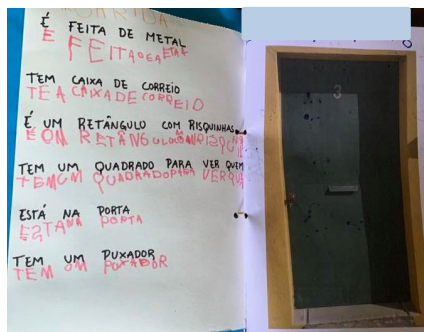 É FEITA DE METAL
E FEITADEAETAL
TEM CAIXA DE CORREIO
TEA CAIXADECORREIO
É UM RETÂNGULO COM RISQUINHAS
E ON RETÂNGULO
TEM UM QUADRADO PARA VER QUEM
TEMUM QUADRADOPARA VERQUE
ESTÁ NA PORTA
ESTANA PORTA
TEM UM PUXADOR
TEM UM PUXADOR
3